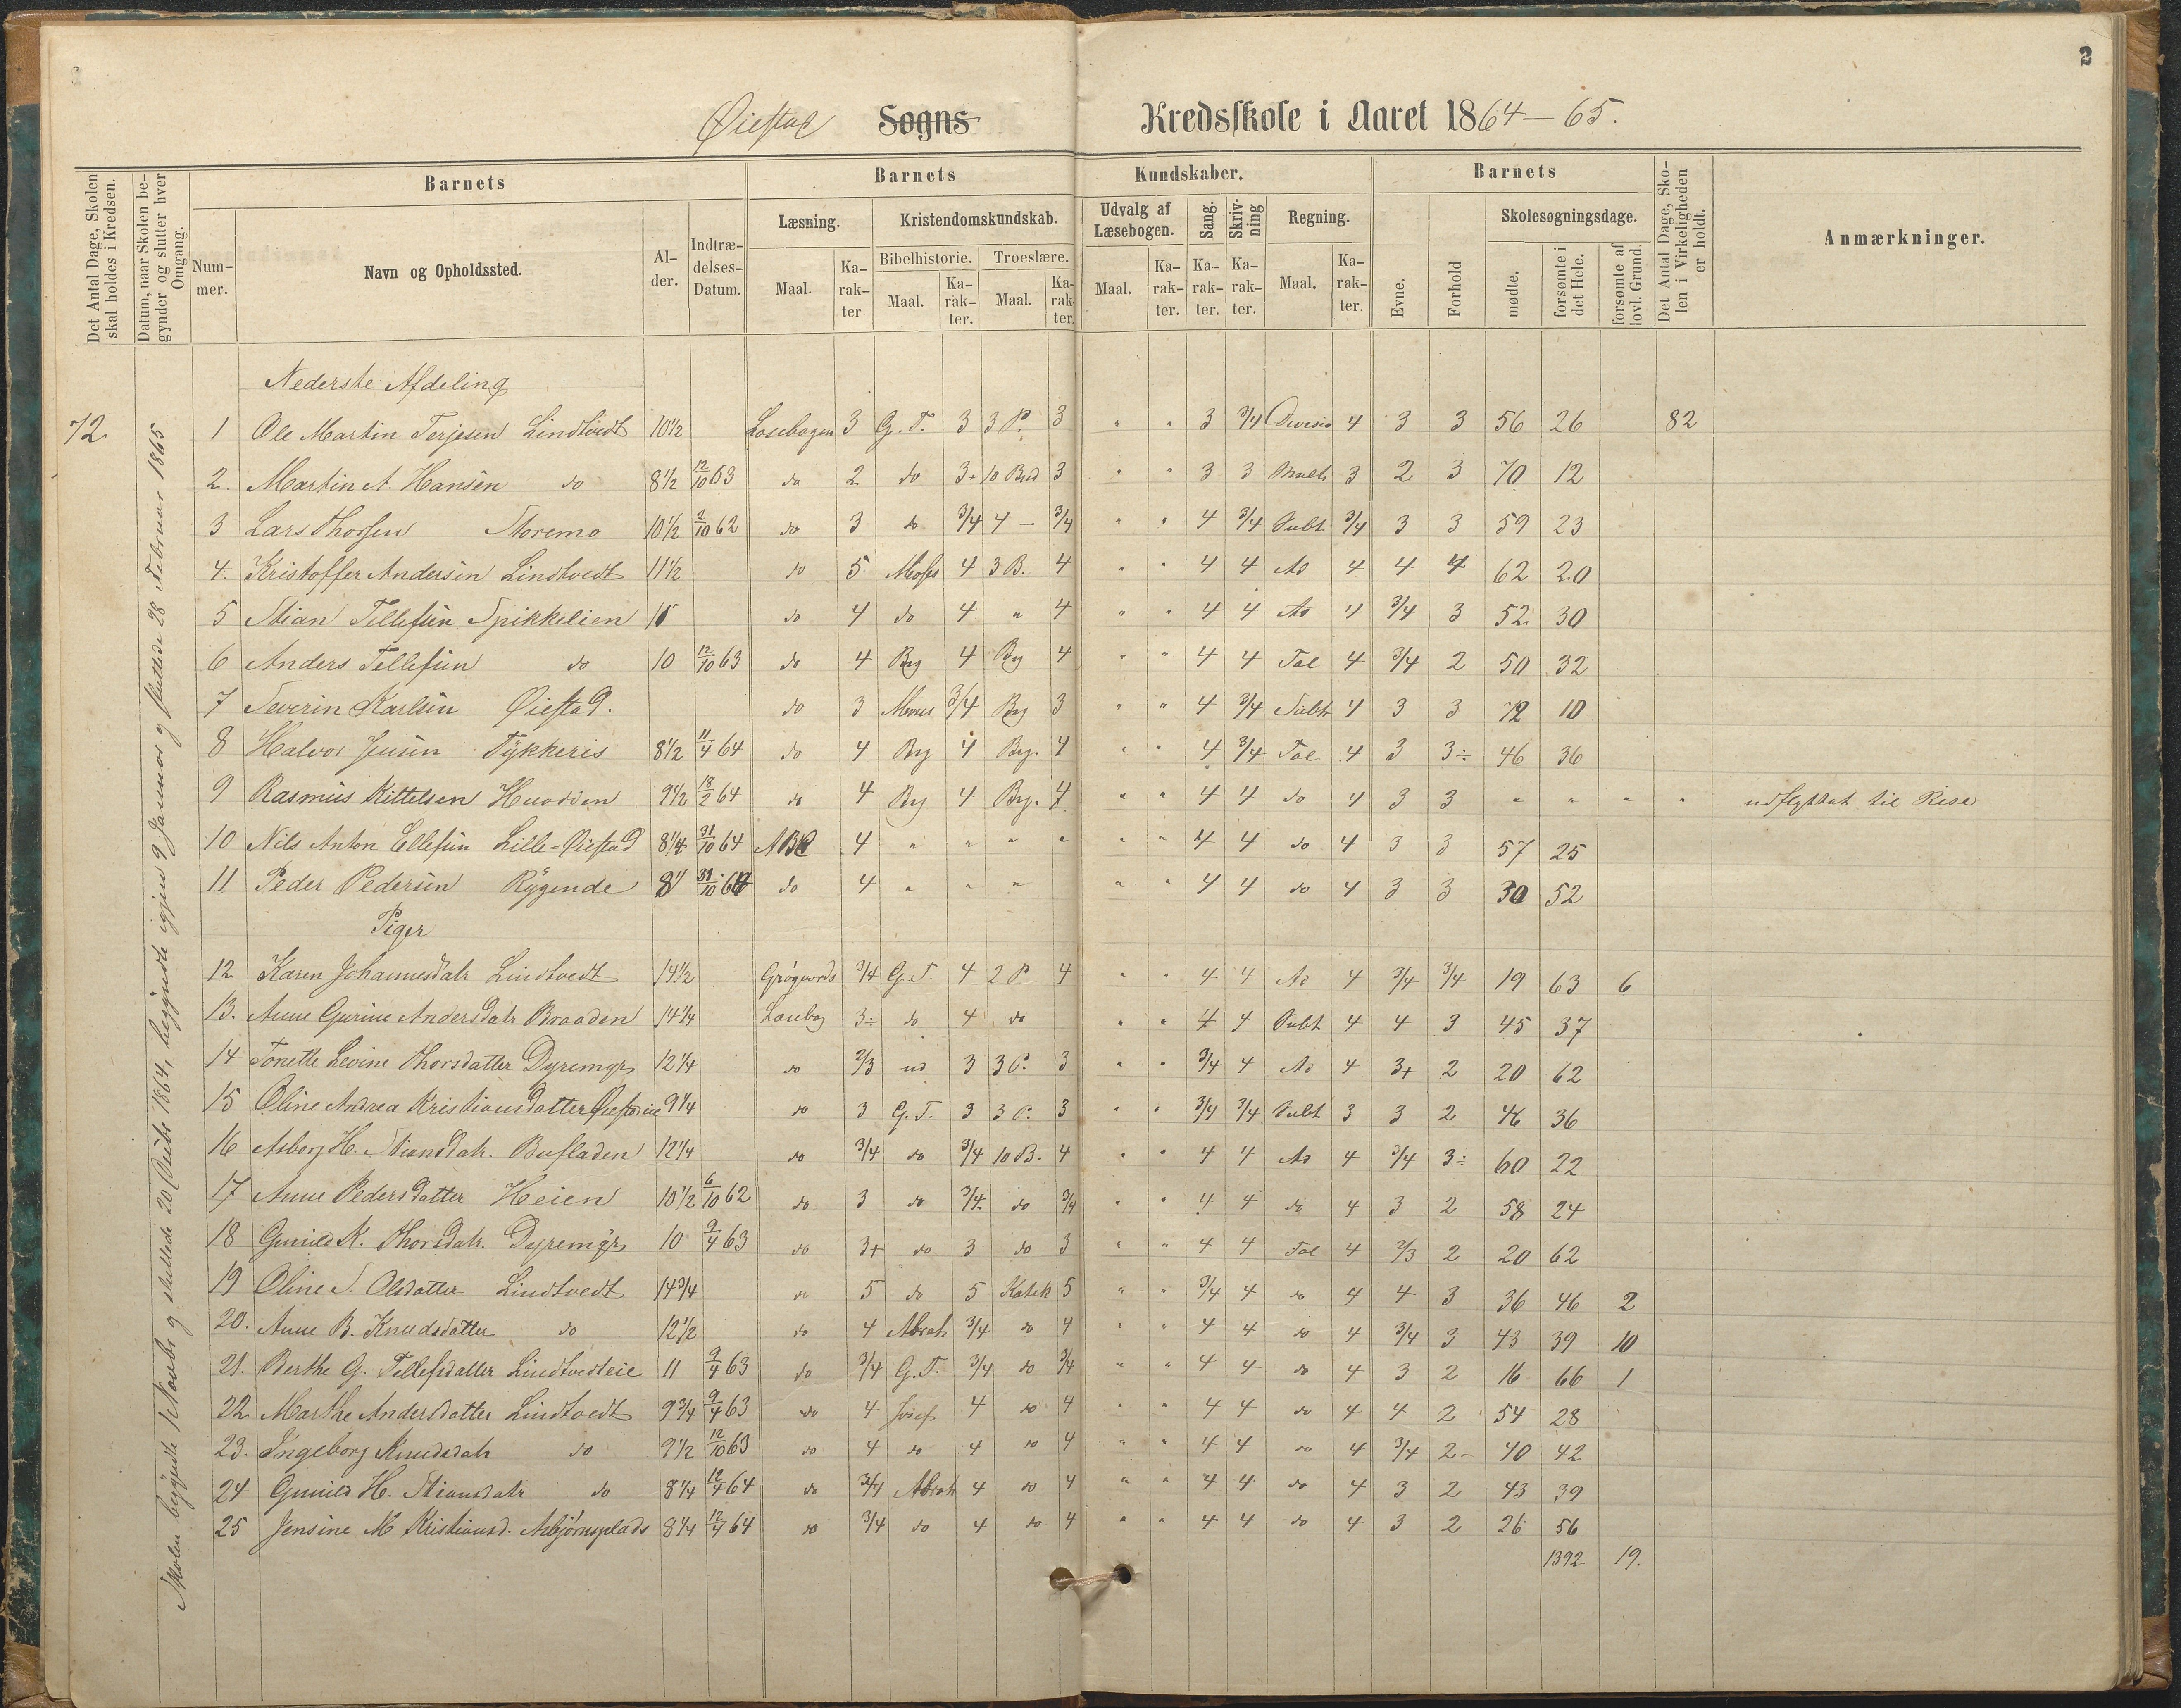 2
Øiestad Sogns Kredsskole i Aaret 1864–65.
Det Antal Dage, Skolen skal holdes i Kredsen.
Datum, naar Skolen begynder og slutter hver Omgang.
Barnets
Nummer.
Navn og Opholdssted.
Alder.
Indtrædelses-Datum.
Barnets Kundskaber.
Læsning.
Maal.
Karakter
Kristendomskundskab.
Bibelhistorie.
Maal.
Karakter.
Troeslære.
Maal.
Karakter.
Udvalg af Læsebogen.
Maal.
Karakter.
Sang.
Karakter.
Skrivning
Karakter.
Regning.
Maal.
Karakter.
Barnets
Evne.
Forhold
Skolesøgningsdage.
mødte.
forsømte i det Hele.
forsømte af lovl. Grund.
Det Antal Dage, Skolen i Virkeligheden er holdt.
Anmærkninger.
Skolen begyndte 20 Oktbr 1864, begyndte igjen 9 Januar og sluttede 28 Februar 1865
Nederste Afdeling
72 1 Ole Martin Terjesen Lindtvedt 10½ Læsebogen 3 G. T. 3 3 P. 3 " " 3 3/4 Divisio 4 3 3 56 26 82
2. Martin A. Hansen do 8½ 12/10 63 do 2 do 3+ 10 Bud 3 " " 3 3 Mult 3 2 3 70 12
3 Lars Thorsen Storemo 10½ 2/10 62 do 3 do 3/4 4 — 3/4 " " 4 3/4 Subt 3/4 3 3 59 23
4. Kristoffer Andersen Lindtvedt 11½ do 5 Moses 4 3 B. 4 " " 4 4 Ad 4 4 4 62 20
5 Stian Tellefsen Spikkelien do 4 do 4 " 4 " " 4 4 Ad 4 3/4 3 52 30
6 Anders Tellefsen do 10 12/10 63 do 4 Beg 4 Beg 4 " " 4 4 Tal 4 3/4 2 50 32
7 Severin Karlsen Øiestad. do 3 Moses 3/4 Beg 3 " " 4 3/4 Subtr 4 3 3 72 10
8 Halvor Jensen Tykkeris 8½ 11/4 64 do 4 Beg 4 Beg. 4 " " 4 3/4 Tal 4 3 3÷ 46 36
9 Rasmus Kittelsen 9½ 18/2 64 do 4 Beg 4 Beg. 4 " " 4 4 do 4 3 3 " " " " udflyttet til Rise
10 Nils Anton Ellefsen Lille-Øiestad 8¼ 31/10 64 ABC 4 " " " " " " 4 4 do 4 3 3 57 25
11 Peder Pedersen Rygende 31/10 64 do 4 " " " " " 4 4 do 4 3 3 30 52
Piger
12 Karen Johannesdatr Lindtvedt 14½ 3/4 G. T. 4 2 P 4 " " 4 4 Ad 4 3/4 3/4 19 63 6
13. Anne Gurine Andersdatr Braaden 14¼ Læsebog 3÷ do 4 do " " 4 4 Subt 4 4 3 45 37
14 Tonette Levine Thorsdatter Dyremyr 12¼ do 2/3 ud 3 3 P. 3 " " 3/4 4 Ad 4 3+ 2 20 62
15 Oline Andrea Kristiansdatter Øiestadeie 9¼ do 3 G. T. 3 3 P. 3 " " 3/4 3/4 Subt 3 3 2 46 36
16 Asborg H. Stiansdatr. Bufladen 12¼ do 3/4 do 3/4 10 B. 4 " " 4 4 Ad 4 3/4 3÷ 60 22
17 Anne Pedersdatter Heien 10½ 6/10 62 do 3 do 3/4 do 3/4 " " 4 4 do 4 3 2 58 24
18 Gunild K. Thorsdatr. Dyremyr 10 9/4 63 do 3+ do 3 do 3 " " 4 4 Tal 4 2/3 2 20 62
19 Oline S. Olsdatter Lindtvedt 14¾ do 5 do 5 Katek 5 " " 3/4 4 do 4 4 3 36 46 2
20. Anne B. Knudsdatter do 12½ do 4 Abrah 3/4 do 4 " " 4 4 do 4 3/4 3 43 39 10
21. Berthe G. Tellefsdatter Lindtvedteie 11 9/4 63 do 3/4 G. T. 3/4 do 3/4 " " 4 4 do 4 3 2 16 66 1
22 Marthe Andersdatter Lindtvedt 9¾ 9/4 63 do 4 Josef 4 do 4 " " 4 4 do 4 4 2 54 28
23. Ingeborg Knudsdatr do 9½ 12/10 63 do 4 do 4 do 4 " " 4 4 do 4 3/4 2- 40 42
24 Gunild H. Stiansdatr do 8¼ 12/4 64 do 3/4 Abrah 4 do 4 " " 4 4 do 4 3 2 43 39
25 Jensine M Kristiansd. Asbjørnsplads 8¼ 12/4 64 do 3/4 do 4 do 4 " " 4 4 do 4 3 2 26 56
1392 19.